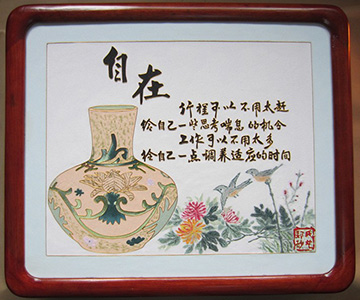 自在
行程可以不用太赶
给自己一些思考喘息的机会
工作可以不用太多
给自己一点调养适应的时间